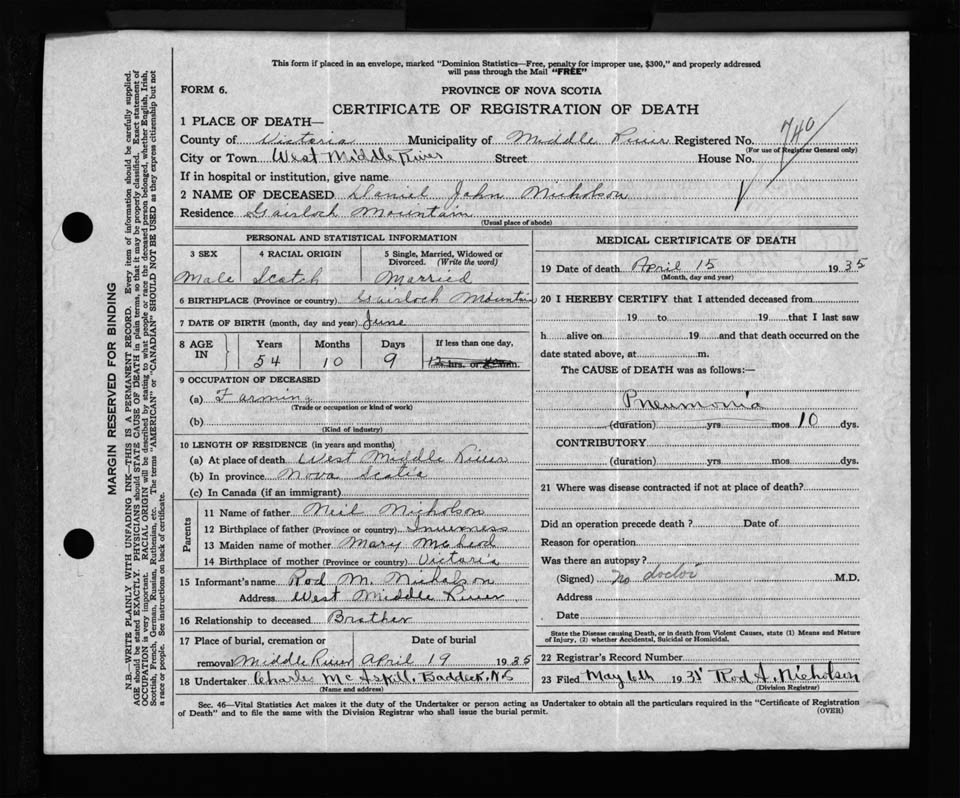 This form if placed in an envelope, marked "Dominion Statistics—Free, penalty for improper use, $300," and properly addressed
will pass through the Mail "FREE"
FORM 6. PROVINCE OF NOVA SCOTIA
CERTIFICATE OF REGISTRATION OF DEATH
1 PLACE OF DEATH—
County of Victoria Municipality of Middle River Registered No. 740
(For use of Registrar General only)
City or Town West Middle River Street House No.
If in hospital or institution, give name
2 NAME OF DECEASED Daniel John Nicholson
Residence Gairloch Mountain
(Usual place of abode)
PERSONAL AND STATISTICAL INFORMATION
3 SEX 4 RACIAL ORIGIN 5 Single, Married, Widowed or Divorced. (Write the word)
Male Scotch Married
6 BIRTHPLACE (Province or country) Gairloch Mountain
7 DATE OF BIRTH (month, day and year) June
8 AGE IN Years Months Days If less than one day,
54 10 9 12 hrs. or min.
9 OCCUPATION OF DECEASED
(a) Farming
(Trade or occupation or kind of work)
(b)
(Kind of industry)
10 LENGTH OF RESIDENCE (in years and months)
(a) At place of death West Middle River
(b) In province Nova Scotia
(c) In Canada (if an immigrant)
Parents
11 Name of father Neil Nicholson
12 Birthplace of father (Province or country) Inverness
13 Maiden name of mother Mary McLeod
14 Birthplace of mother (Province or country) Victoria
15 Informant's name Rod M. Nicholson
Address West Middle River
16 Relationship to deceased Brother
17 Place of burial, cremation or Date of burial
removal Middle River April 19 1935
18 Undertaker Charles McAskill, Baddeck, NS
(Name and address)
MEDICAL CERTIFICATE OF DEATH
19 Date of death April 15 1935
(Month, day and year)
20 I HEREBY CERTIFY that I attended deceased from
19 to 19 that I last saw
h alive on 19 and that death occurred on the
date stated above, at m.
The CAUSE of DEATH was as follows:—
Pneumonia
(duration) yrs mos 10 dys.
CONTRIBUTORY
(duration) yrs mos dys.
21 Where was disease contracted if not at place of death?
Did an operation precede death? Date of
Reason for operation
Was there an autopsy?
(Signed) No doctor M.D.
Address
Date
State the Disease causing Death, or in death from Violent Causes, state (1) Means and Nature
of Injury, (2) whether Accidental, Suicidal or Homicidal.
22 Registrar's Record Number
23 Filed May 6th 1935 Rod A. Nicholson
(Division Registrar)
Sec. 46—Vital Statistics Act makes it the duty of the Undertaker or person acting as Undertaker to obtain all the particulars required in the "Certificate of Registration
of Death" and to file the same with the Division Registrar who shall issue the burial permit. (OVER)
MARGIN RESERVED FOR BINDING
N.B.—WRITE PLAINLY WITH UNFADING INK—THIS IS A PERMANENT RECORD. Every item of information should be carefully supplied.
AGE should be stated EXACTLY. PHYSICIANS should STATE CAUSE OF DEATH in plain terms, so that it may be properly classified. Exact statement of
OCCUPATION is very important. RACIAL ORIGIN will be described by stating to what people or race the deceased person belonged, whether English, Irish,
Scottish, French, German, Russian, Ruthenian, etc. The terms "AMERICAN" or "CANADIAN" SHOULD NOT BE USED as they express citizenship but not
a race or people. See instructions on back of certificate.